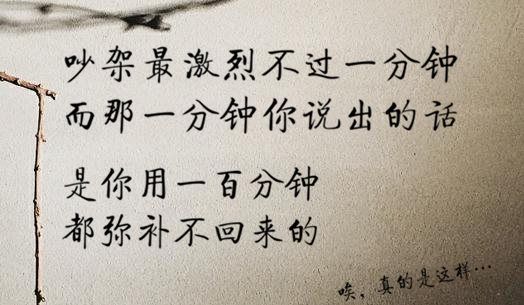 吵架最激烈不过一分钟
而那一分钟你说出的话
是你用一百分钟
都弥补不回来的
唉，真的是这样…